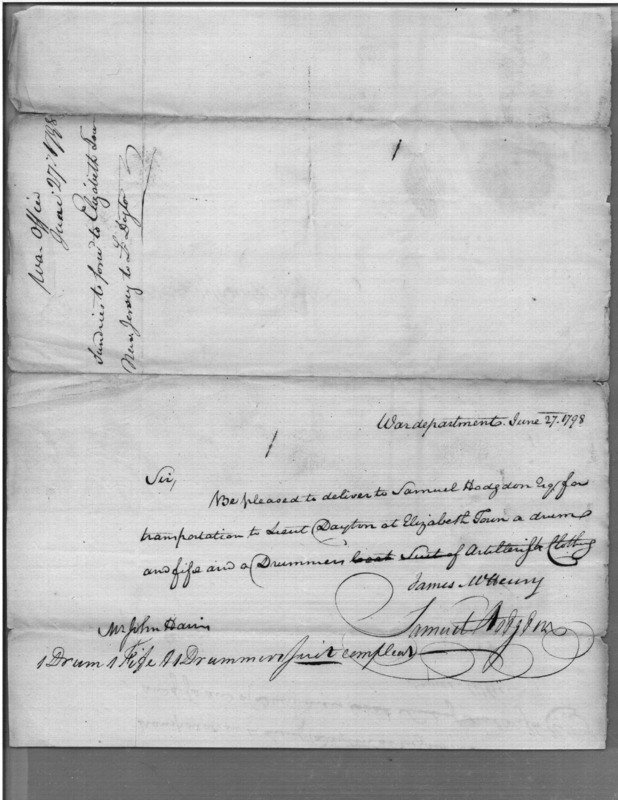 War Office
June 27. 1798
Sundries to forwd to Elizabeth Town
New Jersey to Lt Dayton
War department. June 27. 1798
Sir,
Be pleased to deliver to Samuel Hodgdon Esq. for
transportation to Lieut Dayton at Elizabeth Town a drum
and fife and a Drummers coat Suit of Artillerist Clothing
James McHenry
Samuel Hodgdon
Mr John Harris
1 Drum 1 Fife & 1 Drummers suit compleat